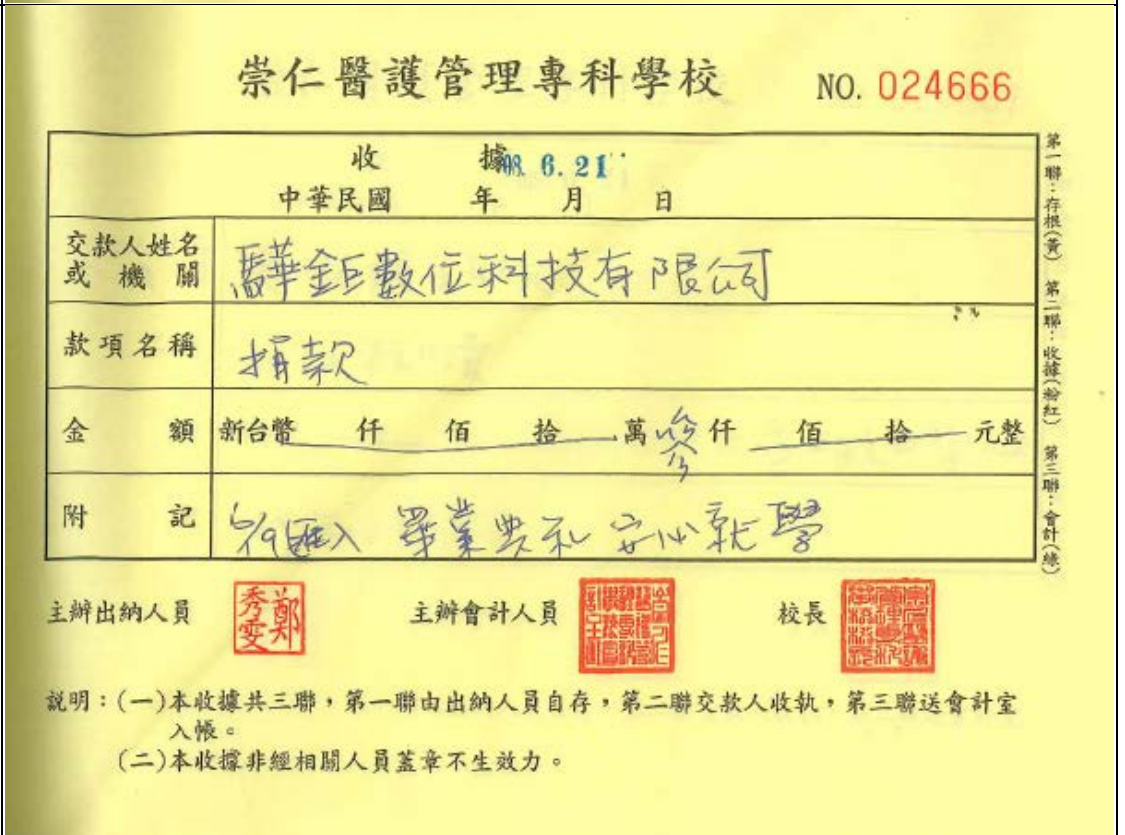 崇仁醫護管理專科學校 NO. 024666
收據
98. 6. 21
中華民國 年 月 日
交款人姓名或機關 驊鉅數位科技有限公司
款項名稱 捐款
金額 新台幣 仟 佰 拾 萬 參 仟 佰 拾 元整
附記 6/19匯入 畢業典礼 安心就學
主辦出納人員 鄭秀雯 主辦會計人員 校長
說明:(一)本收據共三聯,第一聯由出納人員自存,第二聯交款人收執,第三聯送會計室
入帳。
(二)本收據非經相關人員蓋章不生效力。
第一聯:存根(黃) 第二聯:收據(粉紅) 第三聯:會計(綠)